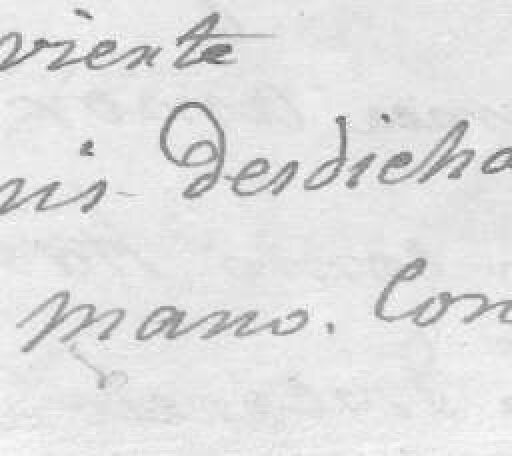 viente
nis desdicha
mano. Con